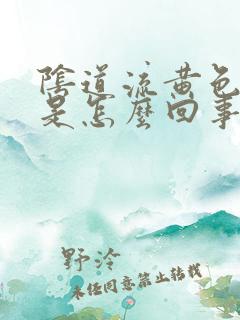 陰道流黄色
是怎麼回事
野泠
未经同意禁止转载